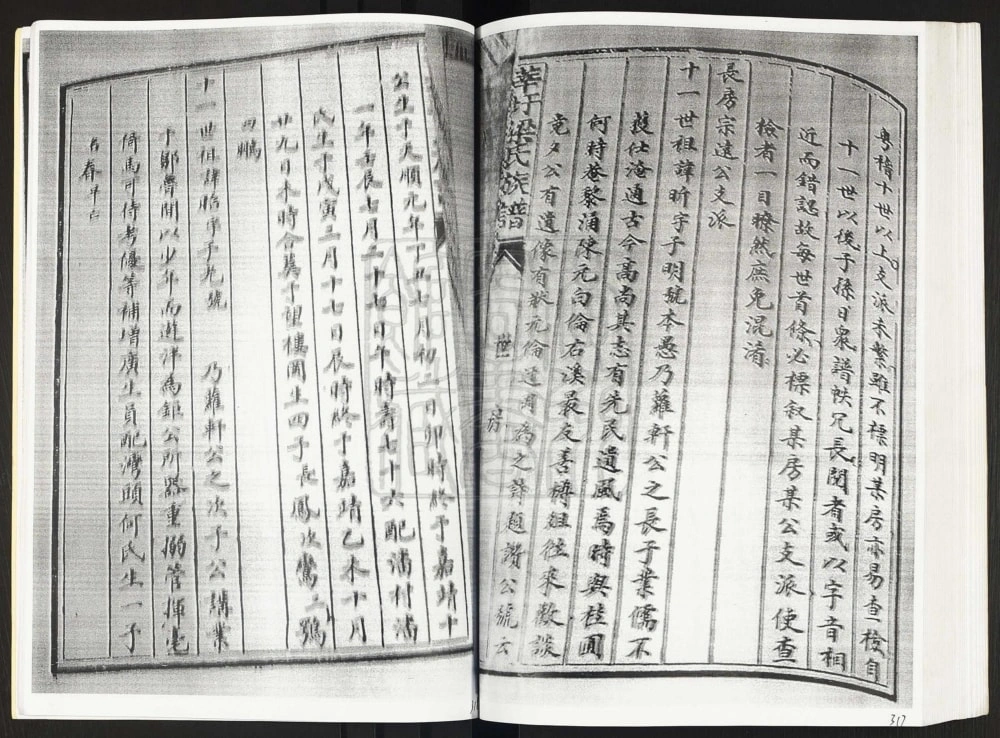 粤稽十世以上支派未繁雖不標明某房亦易查檢自
十一世以後子孫日衆譜帙冗長閱者或以字音相
近而錯認故每世首條必標叙某房某公支派使查
檢者一目瞭然庶免混淆
長房宗遠公支派
十一世祖諱昕字子明號本愚乃蘿軒公之長子業儒不
獲仕淹通古今高尚其志有先民遺風焉時與桂圃
何時巷黎涌陳元白倫右溪最友善樽俎往來敷談
竟夕公有遺像有狀元倫 為之詩題讚公號云
莘圩梁氏族譜
世
公生于天順元年丁丑七月初三日卯時終于嘉靖十
一年壬辰七月二十七日午時壽七十六配潘村潘
氏生于戊寅三月十七日辰時終于嘉靖乙未十月
廿九日未時合葬于望樓閣生四子長鳳次鸞三鶚
四鵬
十一世祖諱 字子允號 乃蘿軒公之次子公講業
于鄒魯間以少年而遊泮為鉅公所器重溺管揮毫
倚馬可待考優等補增廣生員配灣頭何氏生一子
名春早亡
317